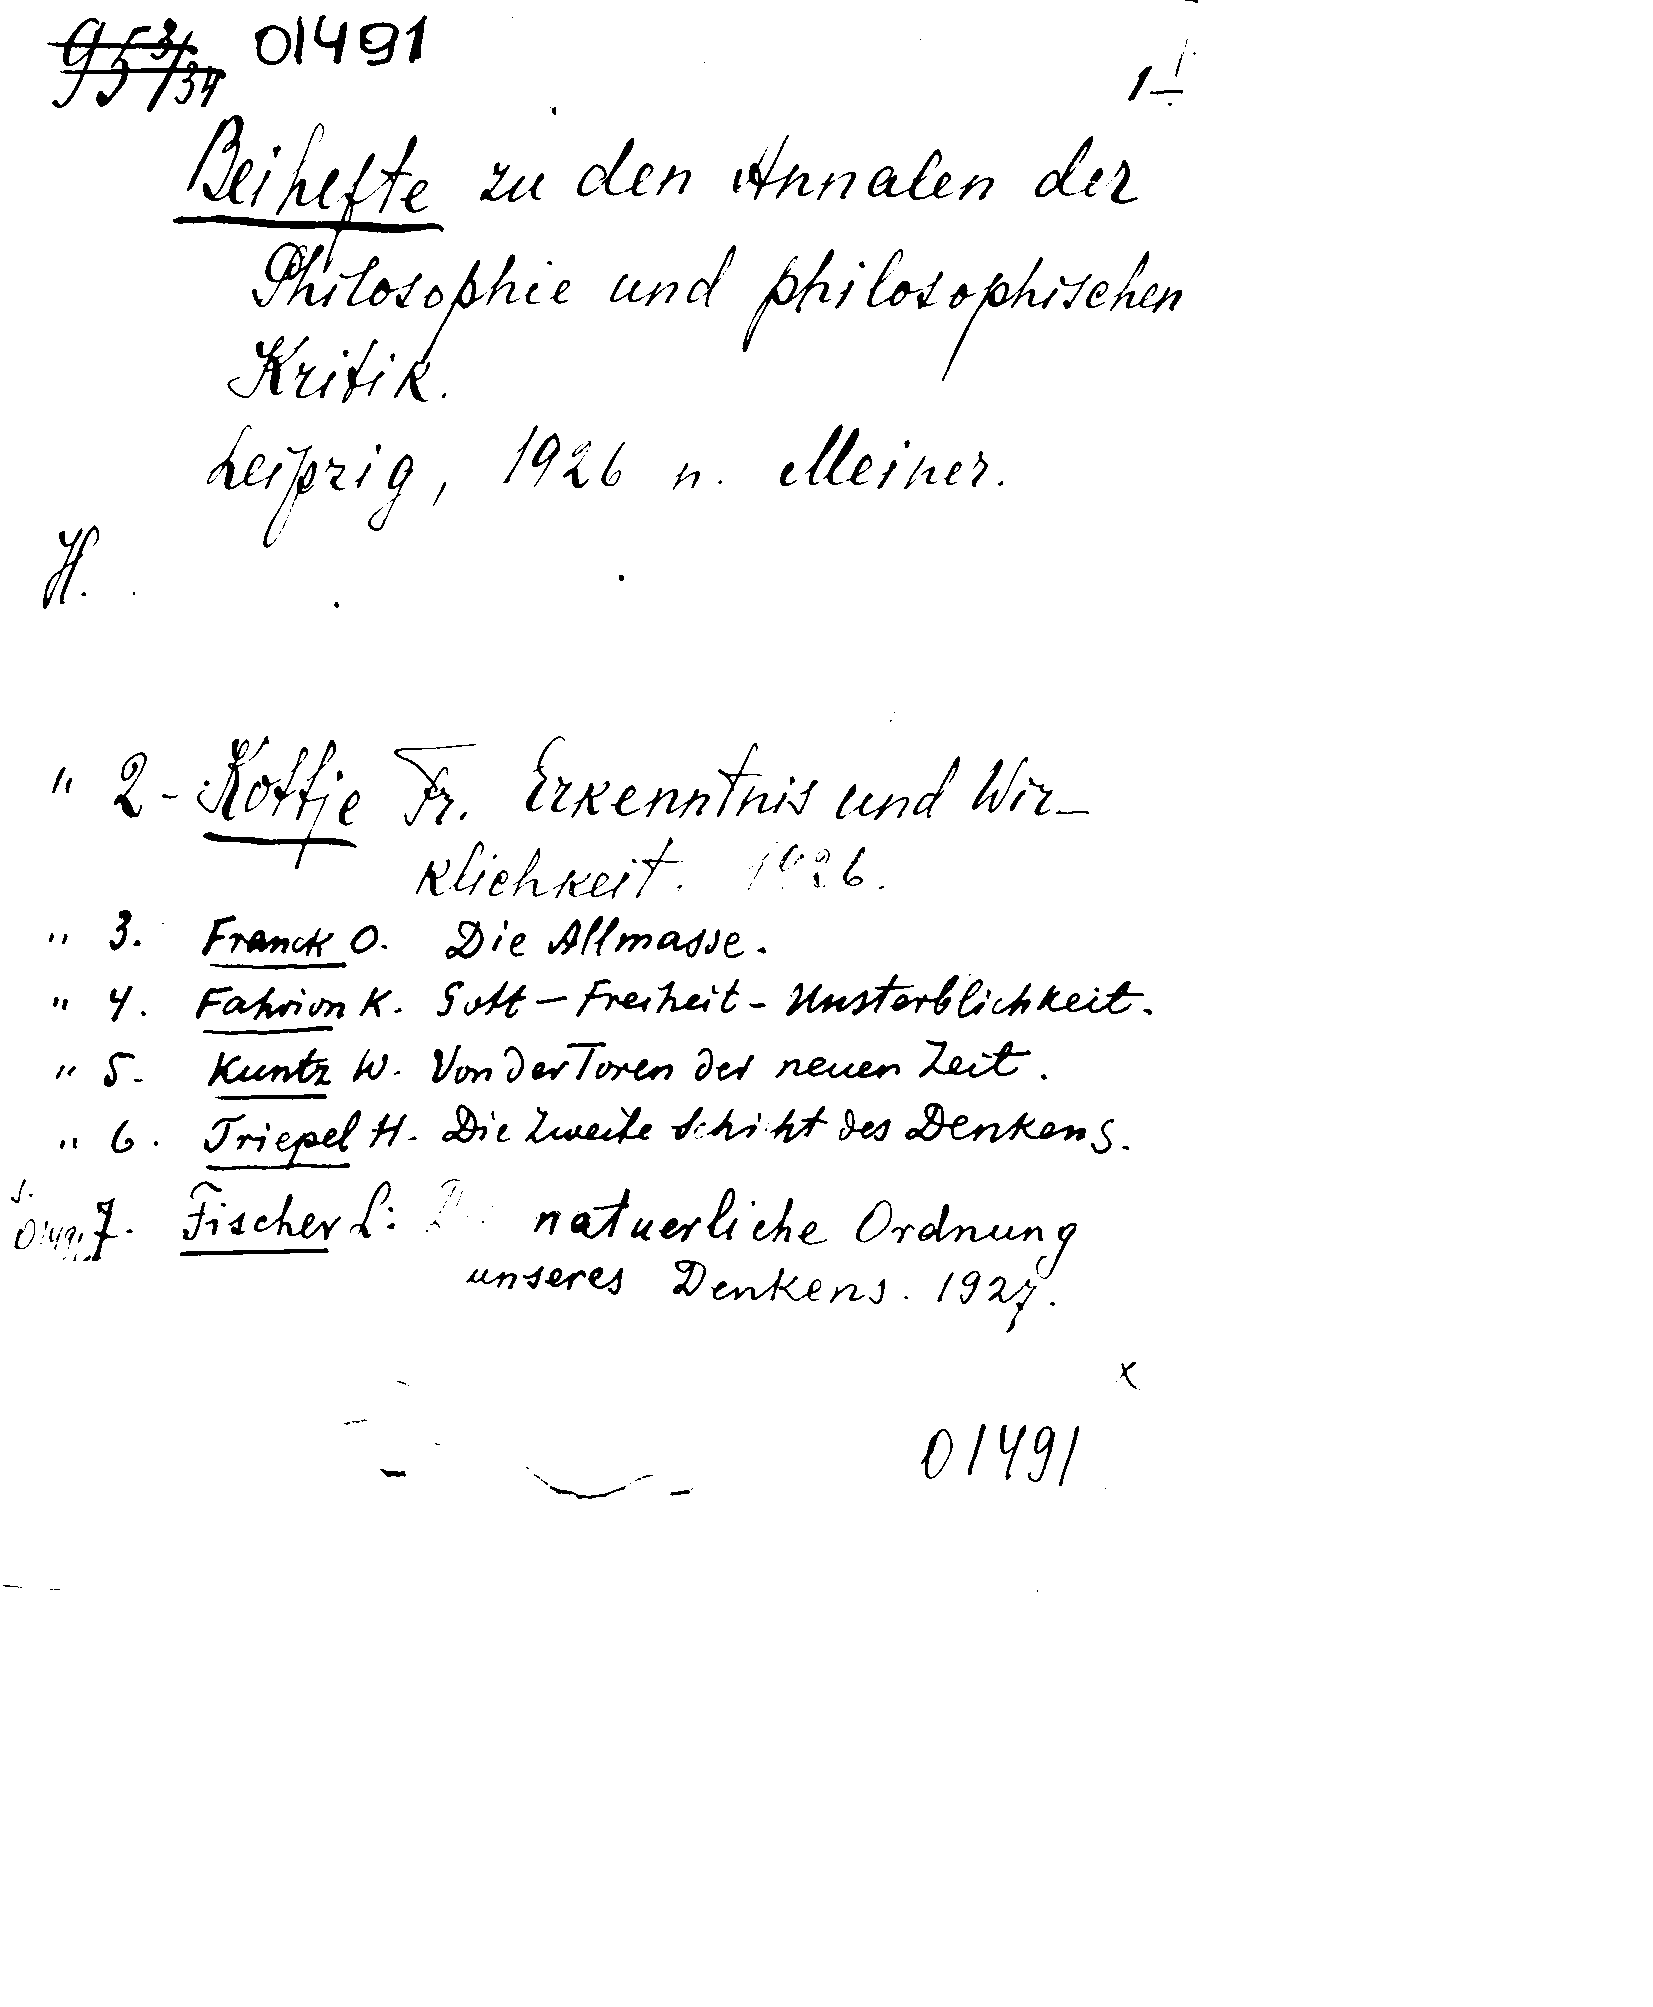 953/34 01491
1-
Beihefte zu den Annalen der
Philosophie und philosophischen
Kritik.
Leipzig, 1926 n. Meiner.
H.
" 2- Kottje Fr. Erkenntnis und Wir-
klichkeit. 1926.
" 3. Franck O. Die Allmasse.
" 4. Fahrion K. Gott - Freiheit - Unsterblichkeit.
" 5. Kuntz W. Von der Toren der neuen Zeit.
" 6. Triepel H. Die Zweite Schiht des Denkens.
01491 7. Fischer L: natuerliche Ordnung
unseres Denkens. 1927.
x
01491